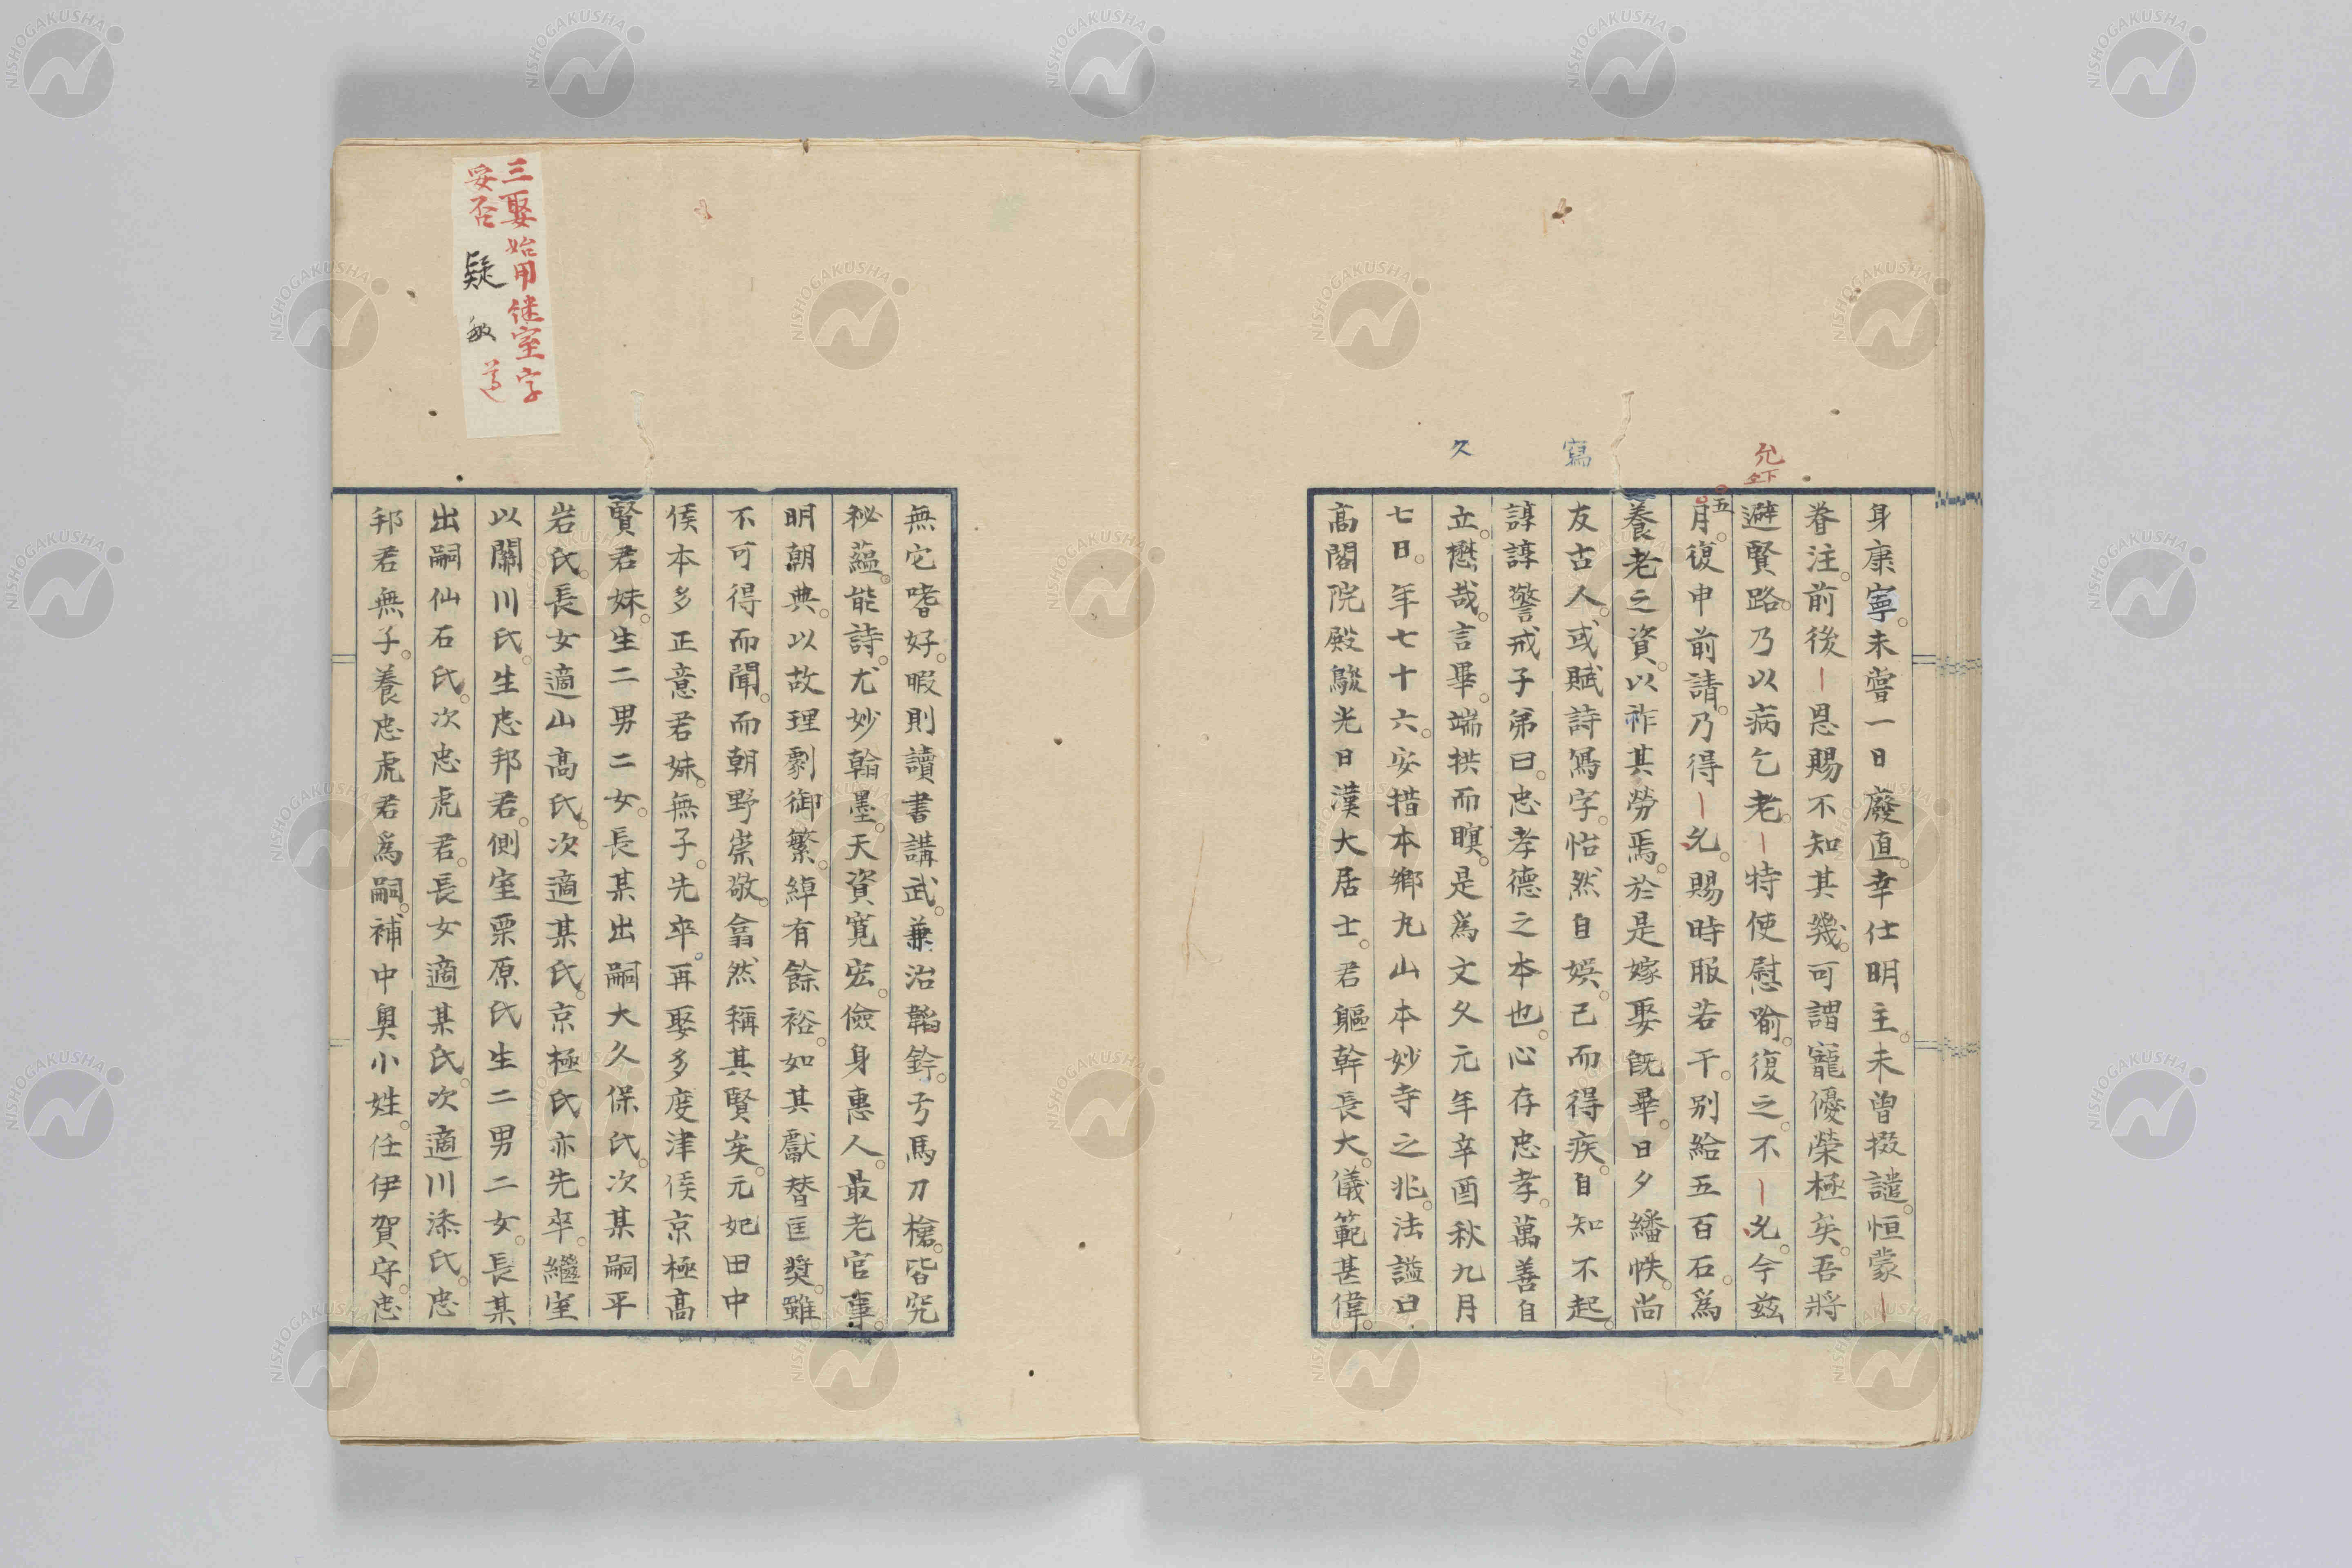 身康寧。未嘗一日廢直。幸仕明主。未曾掇譴。恒蒙
眷注。前後恩賜不知其幾。可謂寵優榮極矣。吾將
避賢路。乃以病乞老。特使慰喻。復之不允。今茲
五月。復申前請。乃得允。賜時服若干。別給五百石。爲
養老之資。以祚其勞焉。於是嫁娶既畢。日夕繙帙。尚
友古人。或賦詩寫字。怡然自娯。已而得疾。自知不起。
諄諄警戒子弟曰。忠孝德之本也。心存忠孝。萬善自
立。懋哉。言畢。端拱而瞑。是爲文久元年辛酉秋九月
七日。年七十六。安措本鄉丸山本妙寺之兆。法謚曰
高閣院殿駿光日漢大居士。君軀幹長大。儀範甚偉。
允
仝下
寫
久
無它嗜好。暇則讀書講武。兼治韜鈐。弓馬刀槍。皆究
祕蘊。能詩。尤妙翰墨。天資寬宏。儉身惠人。最老官事。
明朝典。以故理劇御繁。綽有餘裕。如其獻替匡奬。雖
不可得而聞。而朝野崇敬。翕然稱其賢矣。元妃田中
侯本多正意君妹。無子。先卒。再娶多度津侯京極高
賢君妹。生二男二女。長某出嗣大久保氏。次某嗣平
岩氏。長女適山高氏。次適某氏。京極氏亦先卒。繼室
以關川氏。生忠邦君。側室栗原氏生二男二女。長某
出嗣仙石氏。次忠虎君。長女適某氏。次適川添氏。忠
邦君無子。養忠虎君爲嗣。補中奥小姓。任伊賀守。忠
三娶始用继室字
妥否
疑
敏